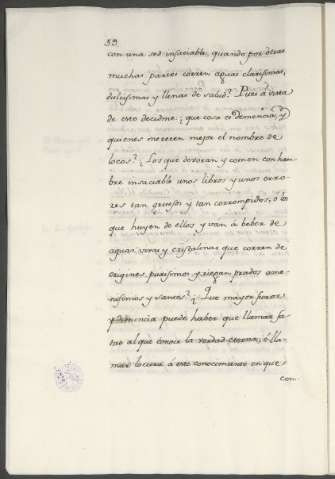 59
con una sed insaciable, quando por otras
muchas partes corren aguas clarisimas,
dulcisimas y llenas de salud? Pues á vista
de esto decidme; que cosa es demencia, y
quienes merecen mejor el nombre de
locos? ¿Los que devoran y comen con ham
bre insaciable unos libros y unos erro
res tan gruesos y tan corrompidos, ó los
que huyen de ellos, y van á beber de
aguas sanas y cristalinas que corren de
origines purisimos y riegan prados ame
nisimos y santos? ¿Que mayor furor
y demencia puede haber que llamar fa
tuo al que conoce la verdad eterna, ó lla
mar locura á este conocimiento en que
con-